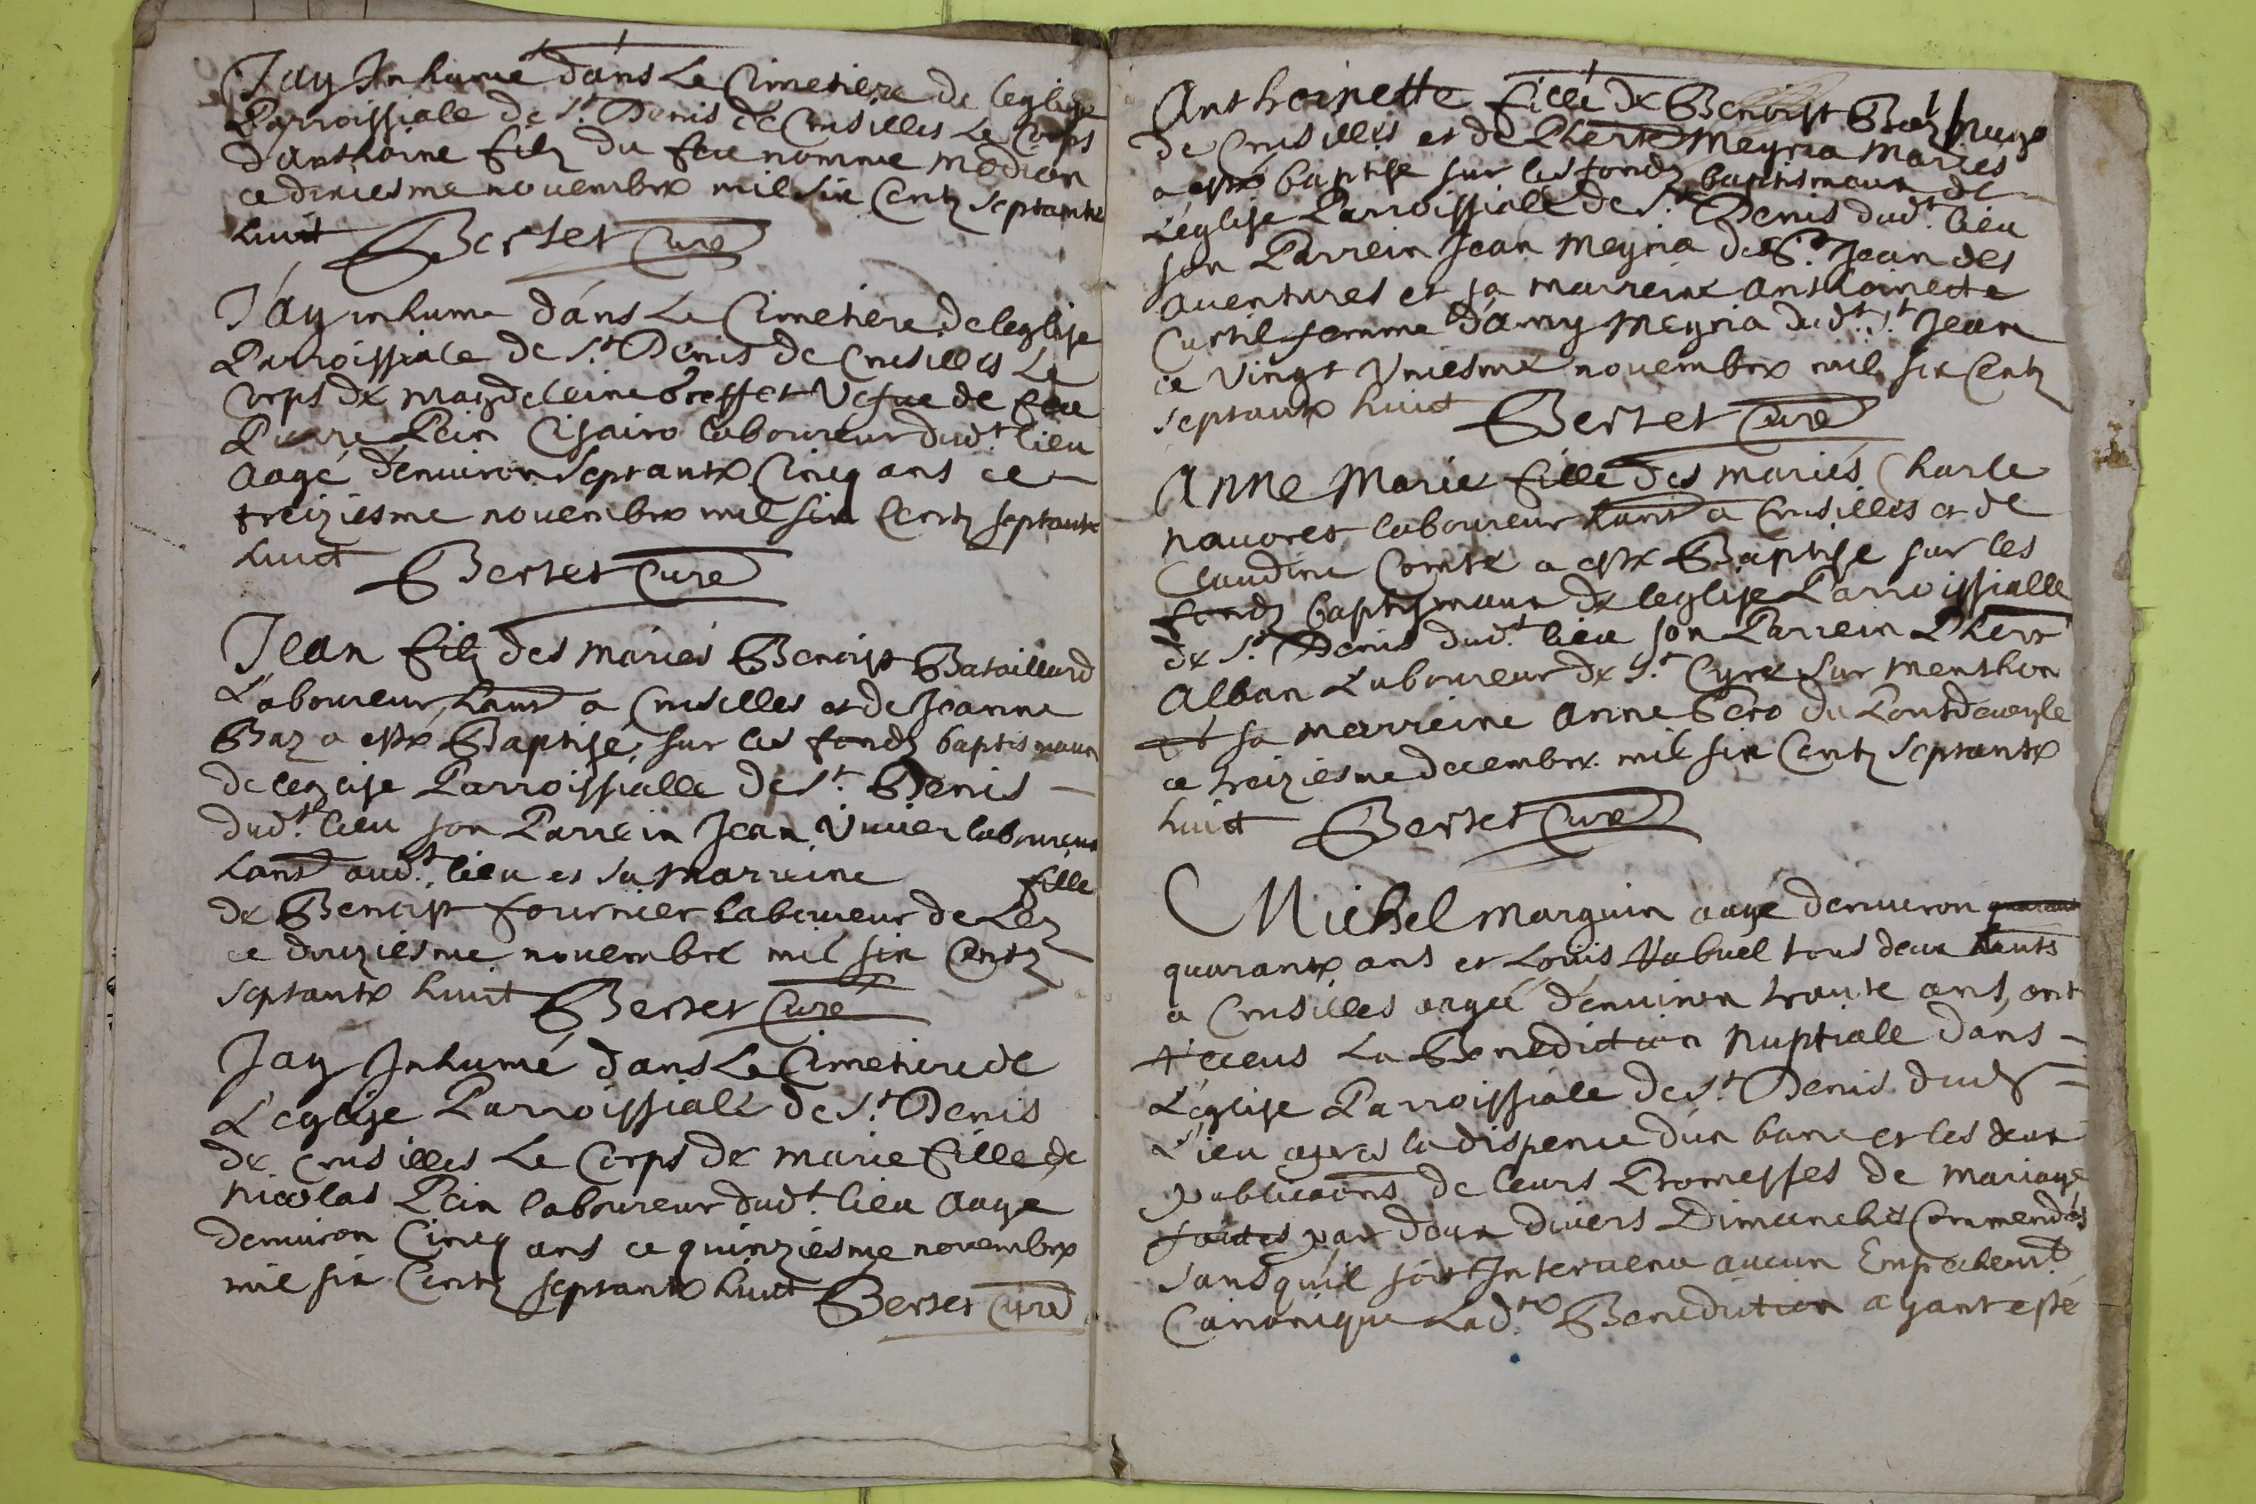 Jay Inhumé dans Le Cimetiere de leglise
Parroissiale de St. Denis de Crusilles Le Corps
d'anthoine filz du feu nomme
ce dixiesme novembre mil six Centz Septante
huict Bertet Curé
J'ay inhumé dans Le Cimetiere de leglise
Parroissiale de St. Denis de Crusilles Le
Corps de Magdeleine Vefue de feu
Pierre Pein laboureur dud.t lieu
aagé d'enuiron Septante Cincq ans ce
treiziesme novembre mil six Centz septante
huict Bertet Curé
Jean filz des mariés Benoist Bataillard
Laboureur hant a Crusilles et de Jeanne
Baz a este Baptisé sur les fondz baptismaux
de leglise Parroissialle de St. Denis
dud.t lieu son Parrein Jean Vivier laboureur
hant aud.t lieu et sa Marreine fille
de Benoist fournier laboureur de Lez
ce douziesme novembre mil six Centz
Septante huict Bertet Curé
Jay Inhumé dans Le Cimetiere de
L'eglise Parroissiale de St. Denis
de Crusilles Le Corps de Marie fille de
Nicolas Pein laboureur dud.t lieu aage
denuiron Cincq ans ce quinziesme novembre
mil six Centz septante huict Bertet Curé
Anthoinette fille de Benoist
de Crusilles et de Meyria Mariés
a este baptise sur les fondz baptismaux de
L'eglise Parroissiale de St. Denis dud.t lieu
son Parrein Jean Meyria de St. Jean des
Aventures et sa marreine Anthoinette
Curtil femme d'amy Meyria dud.t St. Jean
ce vingt Vniesme novembre mil six Centz
septante huict Bertet Curé
Anne Marie fille des mariés Charle
Navoret laboureur hant a Crusilles et de
Claudine Comte a este Baptise sur les
fondz baptismaux de leglise Parroissialle
de St. Denis dud.t lieu son Parrein
Alban Laboureur de St. Cyre Sur Menthon
et sa marreine Anne Pero du Pontdeveyle
ce treiziesme decembre mil six Centz Septante
huict Bertet Curé
Michel Marguin aagé denuiron
quarante ans et Louis tous deux hants
a Crusilles aagée d'enuiron trante ans, ont
receus La Benediction Nuptiale dans
L'eglise Parroissiale de St. Denis dud.t
Lieu apres la dispence d'un banc et les deux
publications de leurs Promesses de Mariage
faites par deux divers Dimanches Commendés
Sans qu'il soit Intervenu aucun Empechem.t
Canonique Lad.te Benediction ayant esté